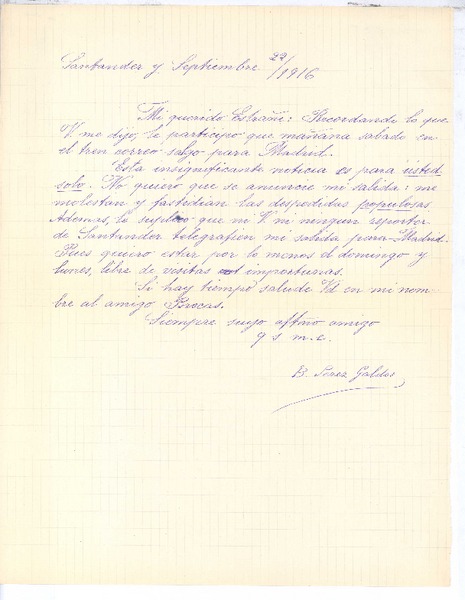 Santander y Septiembre 29/1916
Mi querido Estrañi: Recordando lo que
V. me dijo, le participo que mañana sabado en
el tren correo salgo para Madrid.
Esta insignificante noticia es para usted
solo. No quiero que se anuncie mi salida: me
molestan y fastidian las despedidas populosas
Ademas, le suplico que ni V ni ningun reporter
de Santander telegrafien mi salida para Madrid.
Pues quiero estar por lo menos el domingo y
lunes, libre de visitas importunas.
Si hay tiempo salude Vd en mi nom-
bre al amigo Brocas.
Siempre suyo affmo amigo
q s m c.
B. Perez Galdos